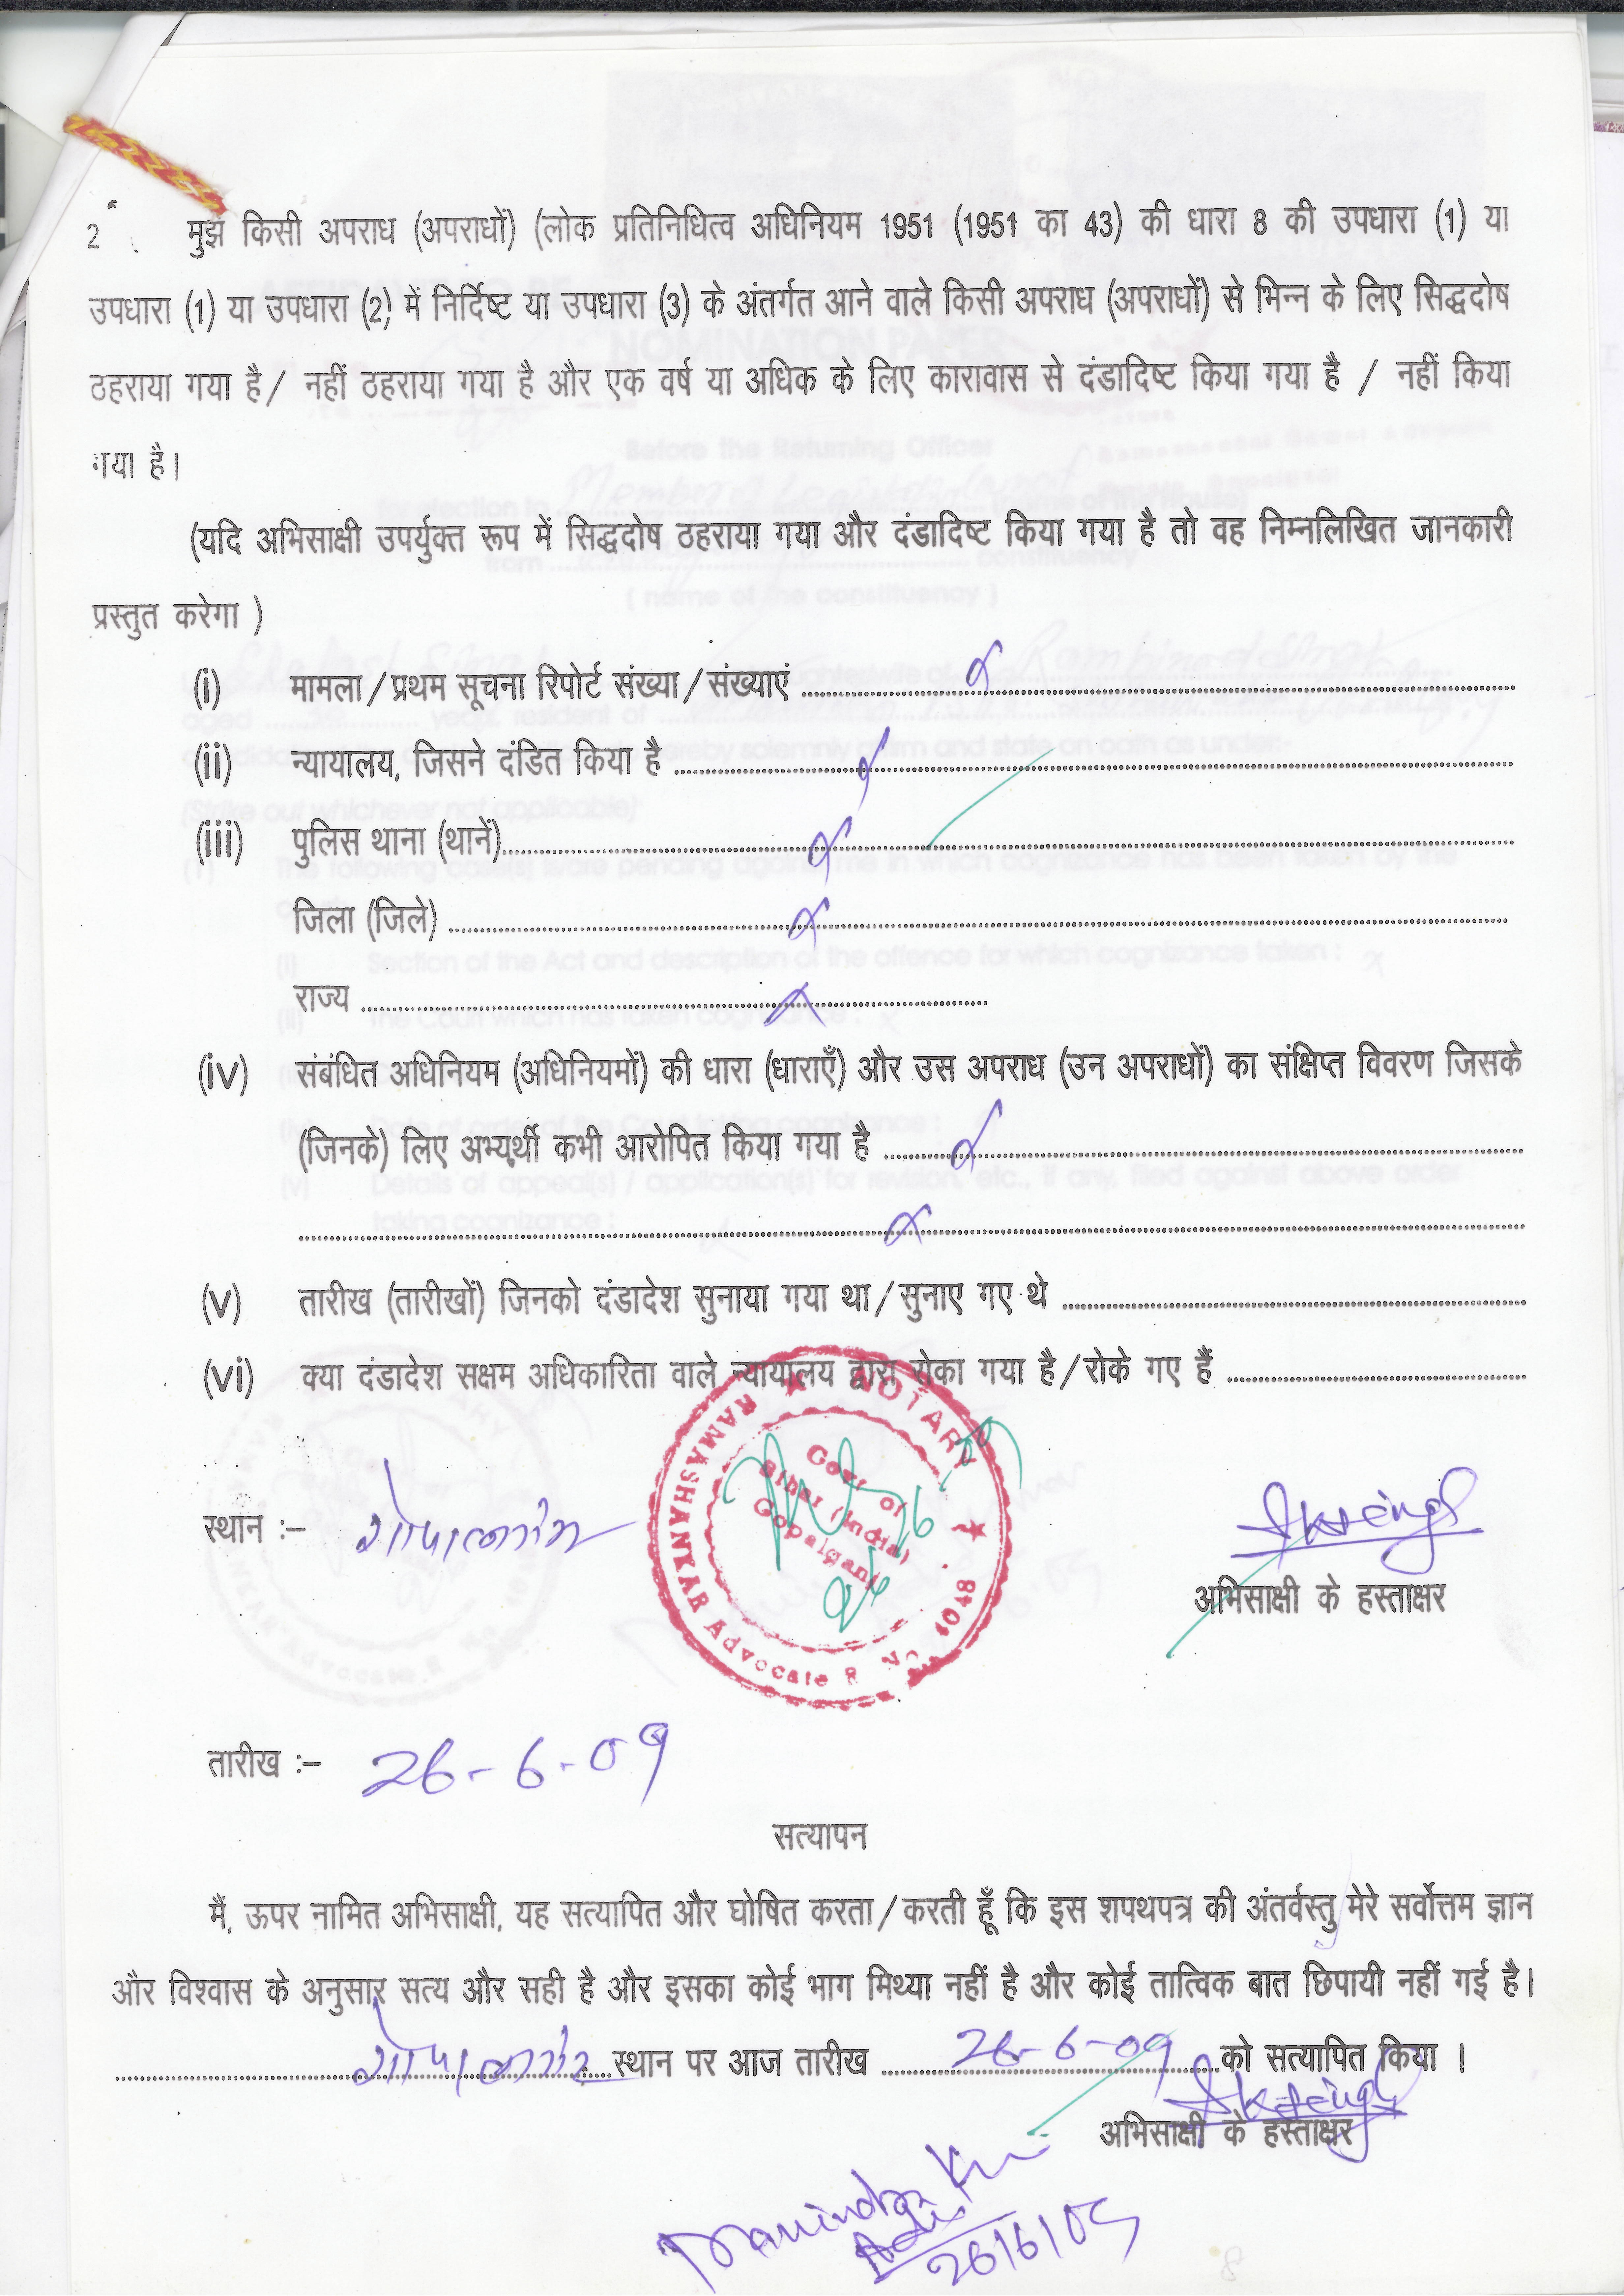 2 मुझे किसी अपराध (अपराधों) (लोक प्रतिनिधित्व अधिनियम 1951 (1951 का 43) की धारा 8 की उपधारा (1) या
उपधारा (1) या उपधारा (2) में निर्दिष्ट या उपधारा (3) के अंतर्गत आने वाले किसी अपराध (अपराधों) से भिन्न के लिए सिद्धदोष
ठहराया गया है/ नहीं ठहराया गया है और एक वर्ष या अधिक के लिए कारावास से दंडादिष्ट किया गया है / नहीं किया
गया है।
(यदि अभिसाक्षी उपर्युक्त रूप में सिद्धदोष ठहराया गया और दंडादिष्ट किया गया है तो वह निम्नलिखित जानकारी
प्रस्तुत करेगा )
(i) मामला/प्रथम सूचना रिपोर्ट संख्या/संख्याएं ........ x
(ii) न्यायालय, जिसने दंडित किया है ........ x
(iii) पुलिस थाना (थानें)........ x
जिला (जिले) ........ x
राज्य ........ x
(iv) संबंधित अधिनियम (अधिनियमों) की धारा (धाराएँ) और उस अपराध (उन अपराधों) का संक्षिप्त विवरण जिसके
(जिनके) लिए अभ्यर्थी कभी आरोपित किया गया है ........ x
........ x
(v) तारीख (तारीखों) जिनको दंडादेश सुनाया गया था/सुनाए गए थे ........
(vi) क्या दंडादेश सक्षम अधिकारिता वाले न्यायालय द्वारा रोका गया है/रोके गए हैं ........
NOTARY
RAMASHANKAR Advocate R No 1048
Govt of
Bihar (India)
Gopalganj
स्थान :– गोपालगंज
अभिसाक्षी के हस्ताक्षर
तारीख :– 26-6-09
सत्यापन
मैं, ऊपर नामित अभिसाक्षी, यह सत्यापित और घोषित करता/करती हूँ कि इस शपथपत्र की अंतर्वस्तु मेरे सर्वोत्तम ज्ञान
और विश्वास के अनुसार सत्य और सही है और इसका कोई भाग मिथ्या नहीं है और कोई तात्विक बात छिपायी नहीं गई है।
गोपालगंज स्थान पर आज तारीख 26-6-09 को सत्यापित किया ।
अभिसाक्षी के हस्ताक्षर
26/6/09